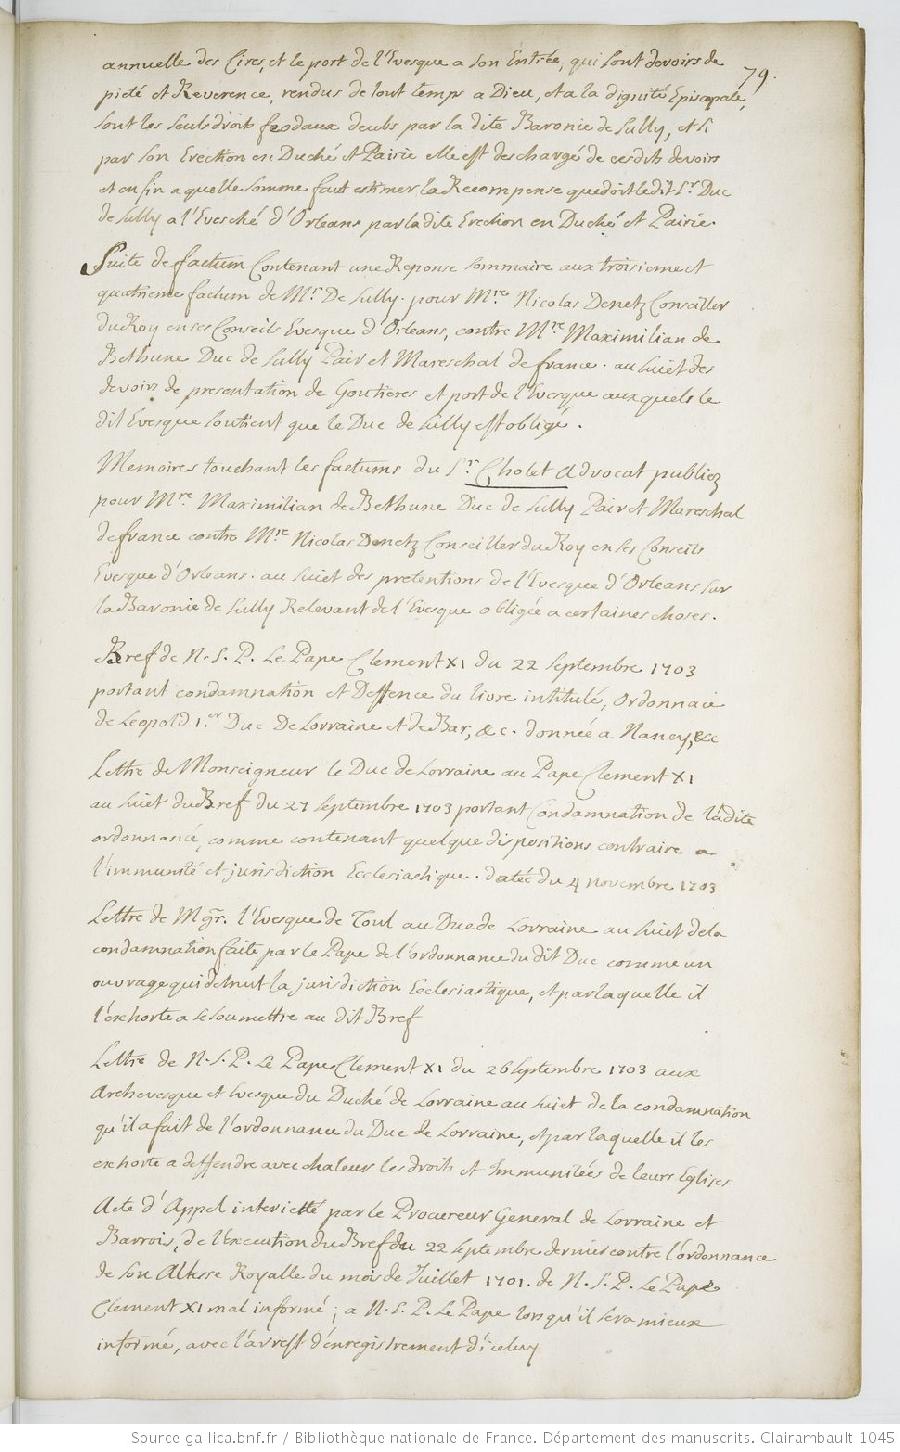 79.
annuelle des Cires, et le port de l'Evesque a son Entrée, qui sont devoirs de
pieté et Reverence, rendus de tout temps a Dieu, et a la dignité Episcopale,
sont les seuls droits feodaux deubs par la dite Baronie de Sully, et si
par son Erection en Duché et Pairie elle est deschargé de cesdits devoirs
et enfin a quelle somme faut estimer la Recompense que doit ledit Sr. Duc
de Sully a l'Evesché d'Orleans par la dite Erection en Duché et Pairie.
Suite de factum Contenant une Reponse sommaire aux troisieme et
quatrieme factum de Mr. De Sully. pour Mre. Nicolas Denetz Conseiller
du Roy en ses Conseils Evesque d'Orleans, contre Mre Maximilian de
Bethune Duc de Sully Pair et Mareschal de france. au suiet des
devoirs de presentation de Goutieres et port de l'Evesque auxquels le
dit Evesque soutient que le Duc de Sully est obligé.
Memoires touchant les factums du Sr. Cholet Advocat publiez
pour Mre. Maximilian de Bethune Duc de Sully Pair et Mareschal
de france contre Mre Nicolas Denetz Conseiller du Roy en ses Conseils
Evesque d'Orleans. au suiet des pretentions de l'Evesque d'Orleans sur
la Baronie de Sully Relevant de l'Evesque obligée a certaines choses.
Bref de N. S. P. Le Pape Clement XI du 22 septembre 1703
portant condamnation et Deffence du livre intitulé, Ordonnace
de Leopold 1.er Duc De Lorraine et de Bar, &c. donnée a Nancy, &c
Lettre de Monseigneur le Duc de Lorraine au Pape Clement XI
au suiet du Bref du 27 septembre 1703 portant Condamnation de ladite
ordonnance, comme contenant quelque dispositions contraire a
l'immunité et jurisdiction Ecclesiastique. datée du 4 novembre 1703
Lettre de Mgr. l'Evesque de Toul au Duc de Lorraine au suiet de la
condamnation faite par le Pape de l'ordonnance du dit Duc comme un
ouvrage qui detruit la jurisdiction Ecclesiastique, et par laquelle il
l'exhorte a se soumettre au dit Bref
Lettre de N. S. P. Le Pape Clement XI du 26 septembre 1703 aux
Archevesque et Evesque du Duché de Lorraine au suiet de la condamnation
qu'il a fait de l'ordonnance du Duc de Lorraine, et par laquelle il les
exhorte a deffendre avec chaleur les droits et Immunitées de leurs Eglises
Acte d'Appel interietté par le Procureur General de Lorraine et
Barrois, de l'execution du Bref du 22 septembre dernier contre l'ordonnance
de son Altesse Royalle du mois de Juillet 1701. de N. S. P. Le Pape
Clement XI mal informé; a N. S. P. Le Pape lorsqu'il sera mieux
informé, avec l'arrest d'enregistrement d'iceluy
Source gallica.bnf.fr / Bibliothèque nationale de France. Département des manuscrits. Clairambault 1045